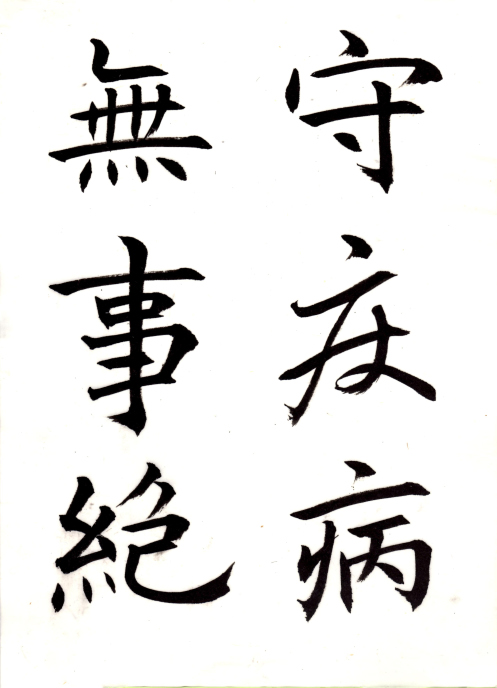 守病
無事絶